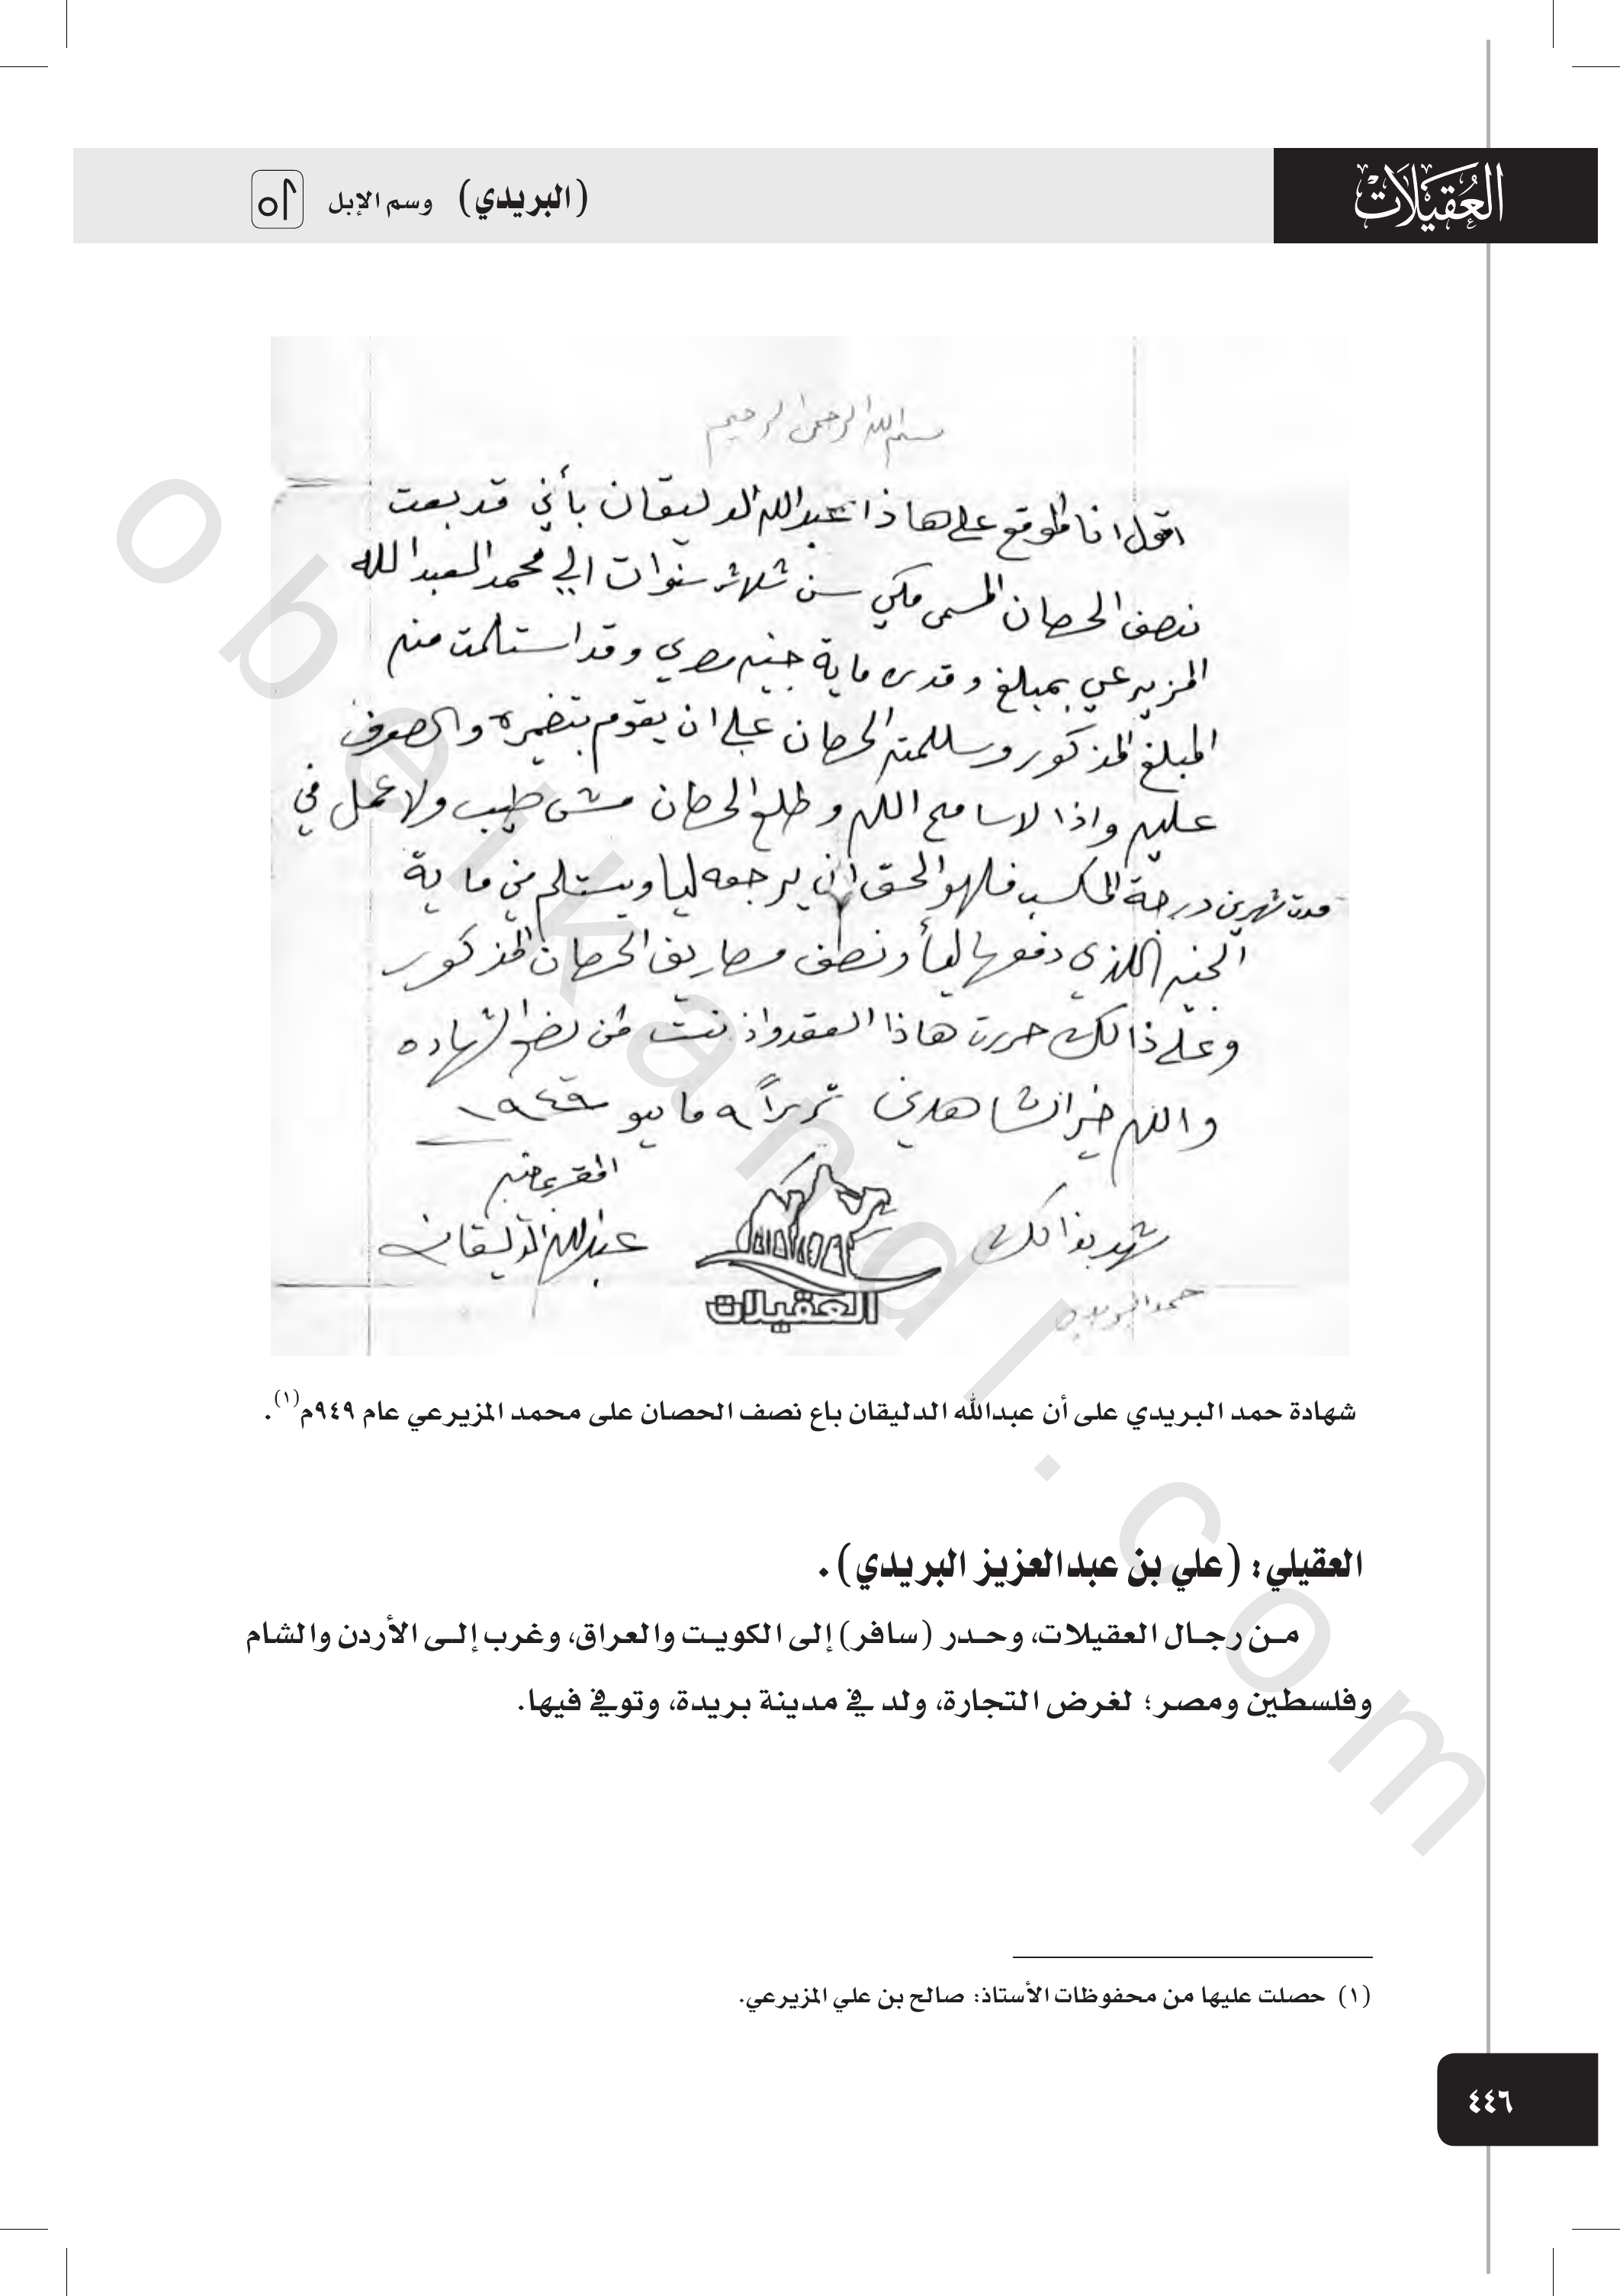 العُقيلات
(البريدي) وسم الإبل
بسم الله الرحمن الرحيم
اقول انا الموقع على هاذا عبدالله الدليقان بأني قد بعت
نصف الحصان المسمى مكي سن ثلاث سنوات الي محمد العبدالله
المزيرعي بمبلغ وقدره ماية جنيه مصري وقد استلمت منه
المبلغ المذكور وسللمته الحصان على ان يقوم بتضميره والصرف
عليه واذا لاسامح الله وطلع الحصان مش طيب ولا عمل في
مدت شهرين درجة المكسب فلهو الحق ان يرجعه ليا ويستلم مني ماية
الجنيه اللذي دفعها ليا ونصف مصاريف الحصان المذكور
وعلى ذالك حررت هاذا العقد واذنت من يضع الشهاده
والله خير الشاهدين تحريراً ٩ مايو ١٩٤٩
المقر بما فيه
عبدالله الدليقان
شهد بذالك
حمد البريدي
العقيلات
شهادة حمد البريدي على أن عبدالله الدليقان باع نصف الحصان على محمد المزيرعي عام ٩٤٩م(١).
العقيلي: (علي بن عبدالعزيز البريدي).
من رجال العقيلات، وحدر (سافر) إلى الكويت والعراق، وغرب إلى الأردن والشام
وفلسطين ومصر؛ لغرض التجارة، ولد في مدينة بريدة، وتوفي فيها.
(١) حصلت عليها من محفوظات الأستاذ: صالح بن علي المزيرعي.
٤٤٦
obeikandl.com